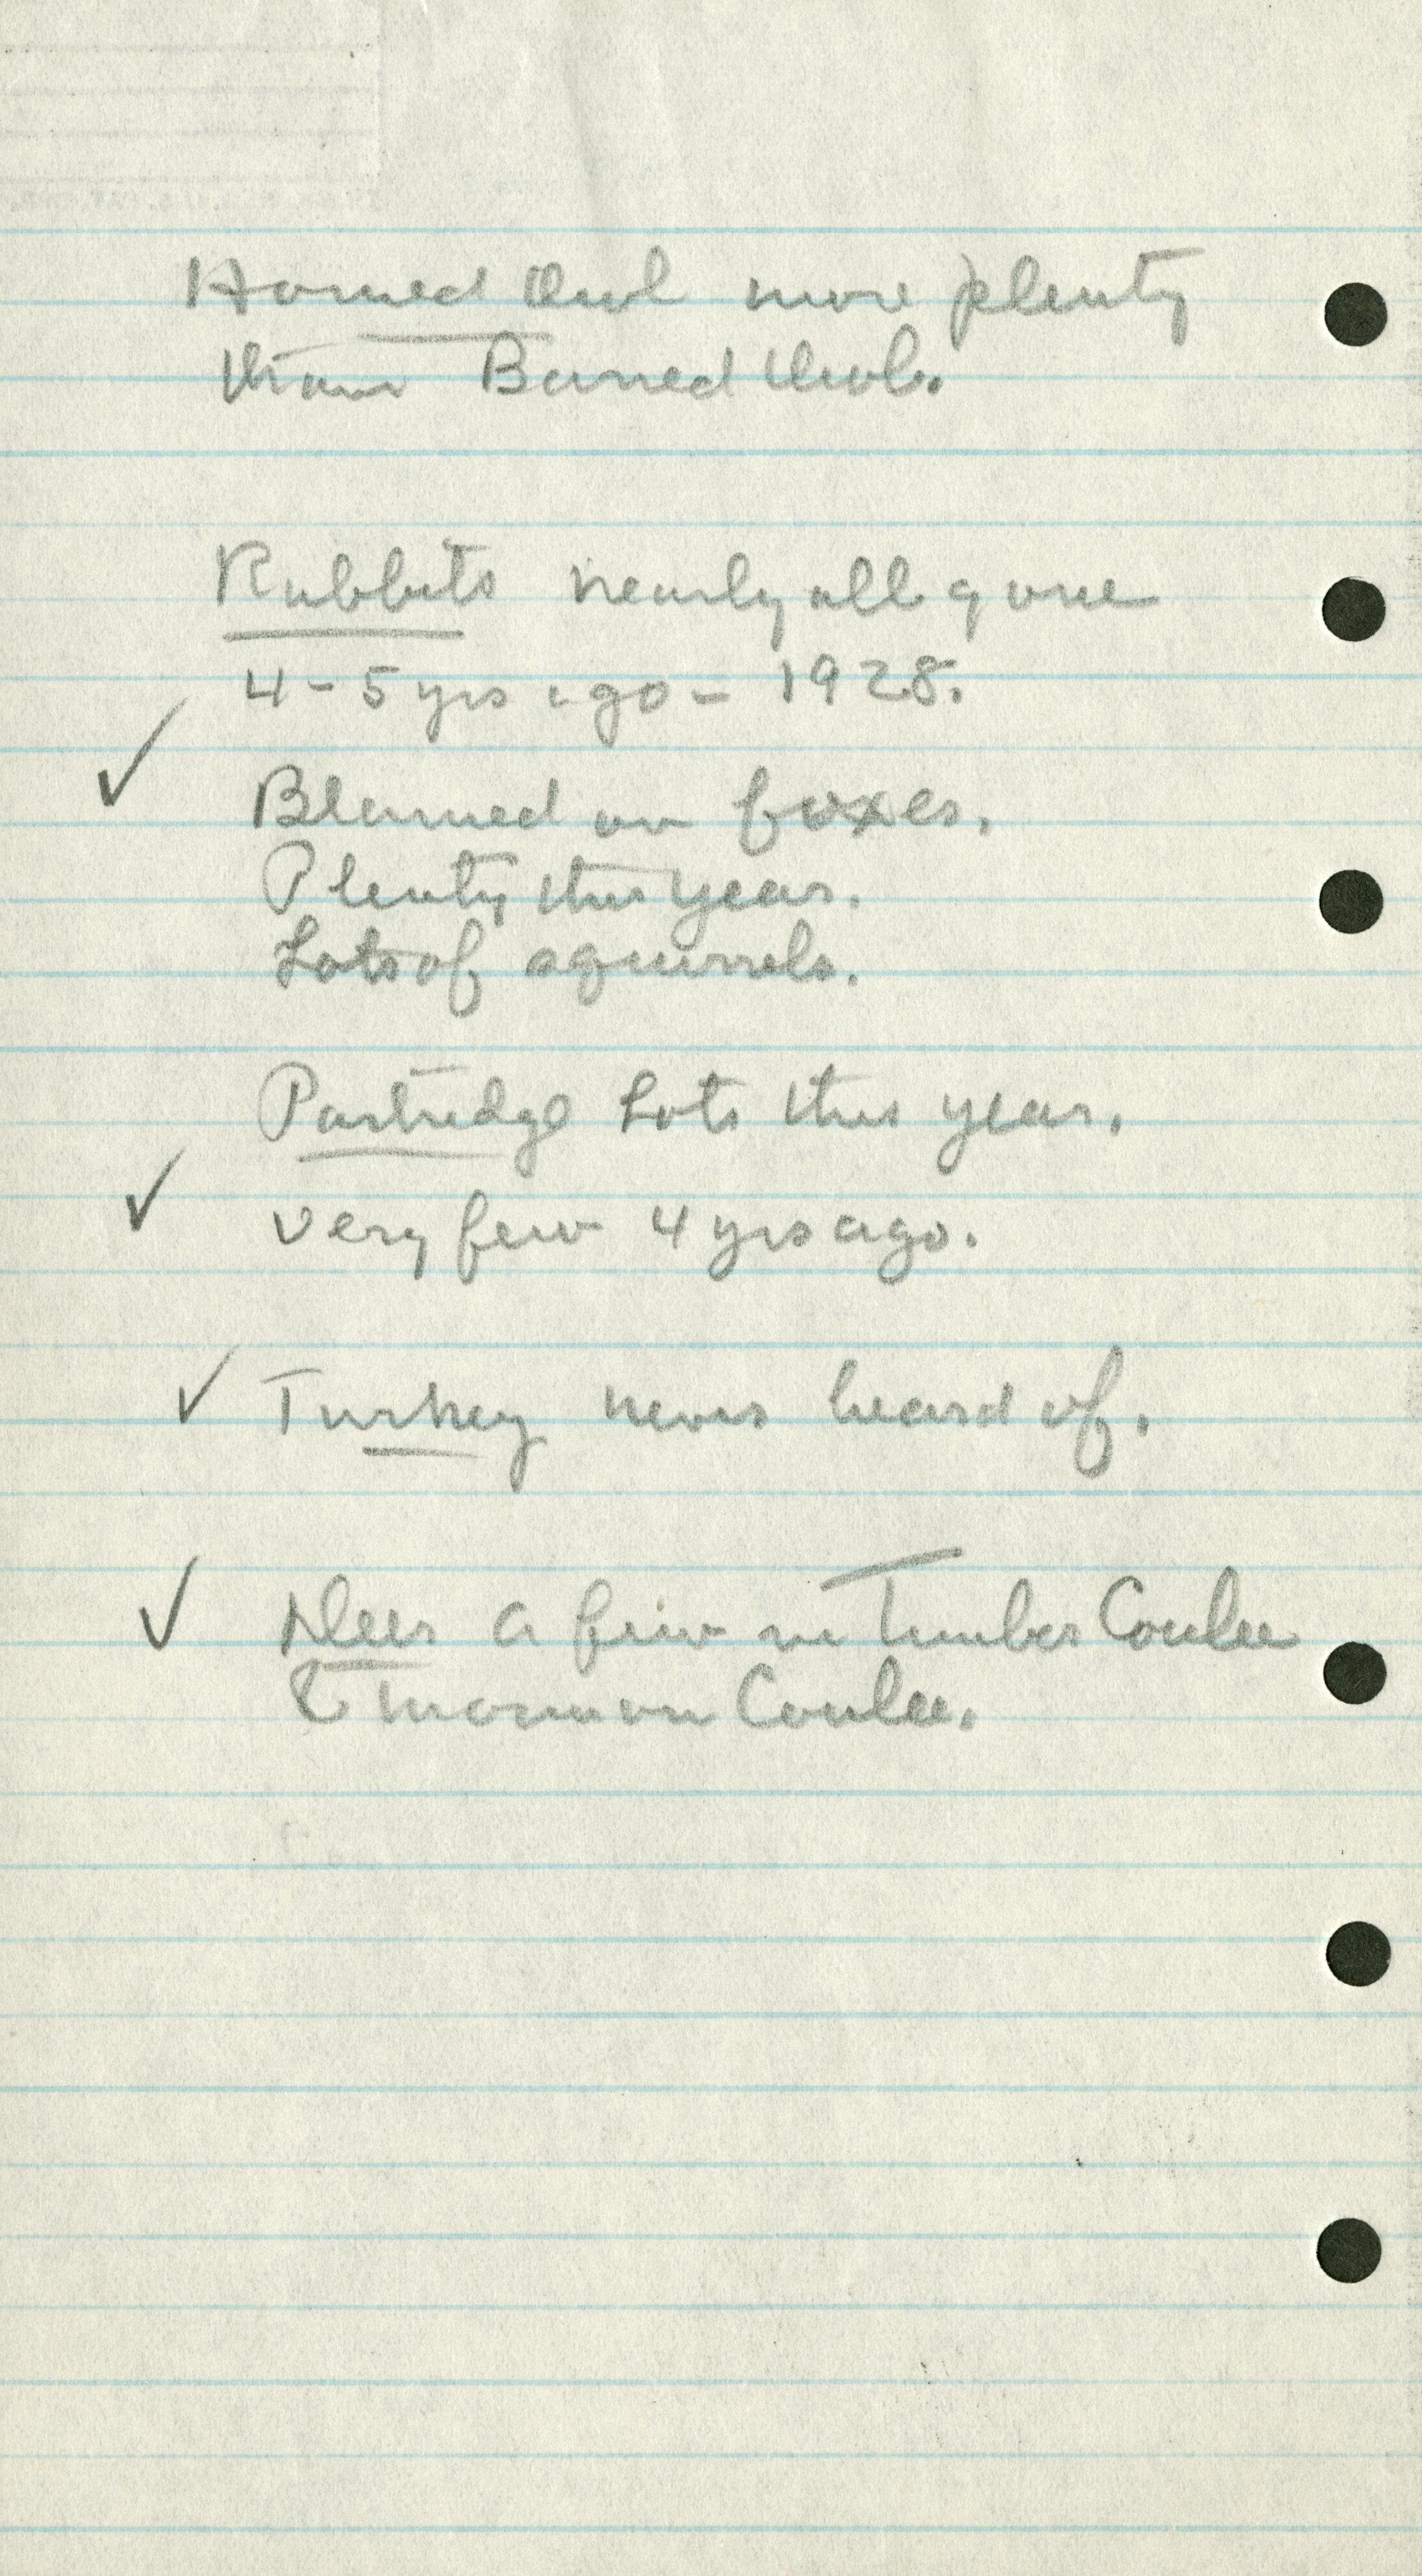 Horned Owl more plenty
than Barred Owl.
Rabbits nearly all gone
4-5 yrs ago - 1928.
✓ Blamed on foxes.
Plenty this year.
Lots of squirrels.
Partridge Lots this year.
✓ very few 4 yrs ago.
✓ Turkey never heard of.
✓ Deer a few in Timber Coulee
& Mormon Coulee.